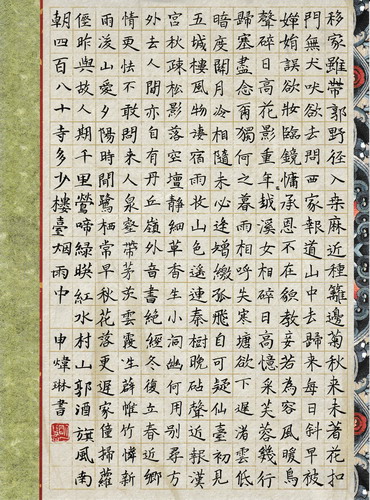 移家雖帶郭野徑入桑麻近種籬邊菊秋來未著花扣
門無犬吠欲去問西家報道山中去歸來每日斜早被
嬋娟誤欲妝臨鏡慵承恩不在貌教妾若為容風暖鳥
聲碎日高花影重年越溪女相碎日高憶采芙蓉幾行
歸塞盡念爾獨何之暮雨相呼失寒塘欲下遲渚雲低
暗度關月冷相隨未必逢矰繳孤飛自可疑仙臺初見
五城樓風物淒宿雨收山色遙連秦樹晚砧聲近報漢
宮秋疎松影落空壇靜細草香生小洞幽何用別尋方
外去人間亦自有丹丘嶺外音書絕經冬復立春近鄉
情更怯不敢問來人泉壑帶茅茨雲霞生薜帷竹憐新
雨後山愛夕陽時閒鷺棲常早秋花落更遲家僮掃蘿
徑昨與故人期千里鶯啼綠映紅水村山郭酒旗風南
朝四百八十寺多少樓臺烟雨中 申煒琳書